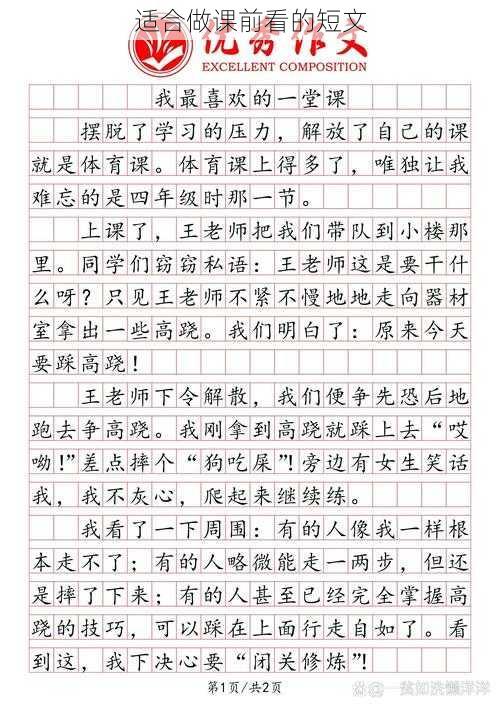 适合做课前看的短文
优秀作文
EXCELLENT COMPOSITION
我最喜欢的一堂课
摆脱了学习的压力，解放了自己的课
就是体育课。体育课上得多了，唯独让我
难忘的是四年级时那一节。
上课了，王老师把我们带队到小楼那
里。同学们窃窃私语：王老师这是要干什
么呀？只见王老师不紧不慢地地走向器材
室拿出一些高跷。我们明白了：原来今天
要踩高跷！
王老师下令解散，我们便争先恐后地
跑去争高跷。我刚拿到高跷就踩上去“哎
呦！”差点摔个“狗吃屎”！旁边有女生笑话
我，我不灰心，爬起来继续练。
我看了一下周围：有的人像我一样根
本走不了；有的人略微能走一两步，但还
是摔了下来；有的人甚至已经完全掌握高
跷的技巧，可以踩在上面行走自如了。看
到这，我下决心要“闭关修炼”！
第1页/共2页